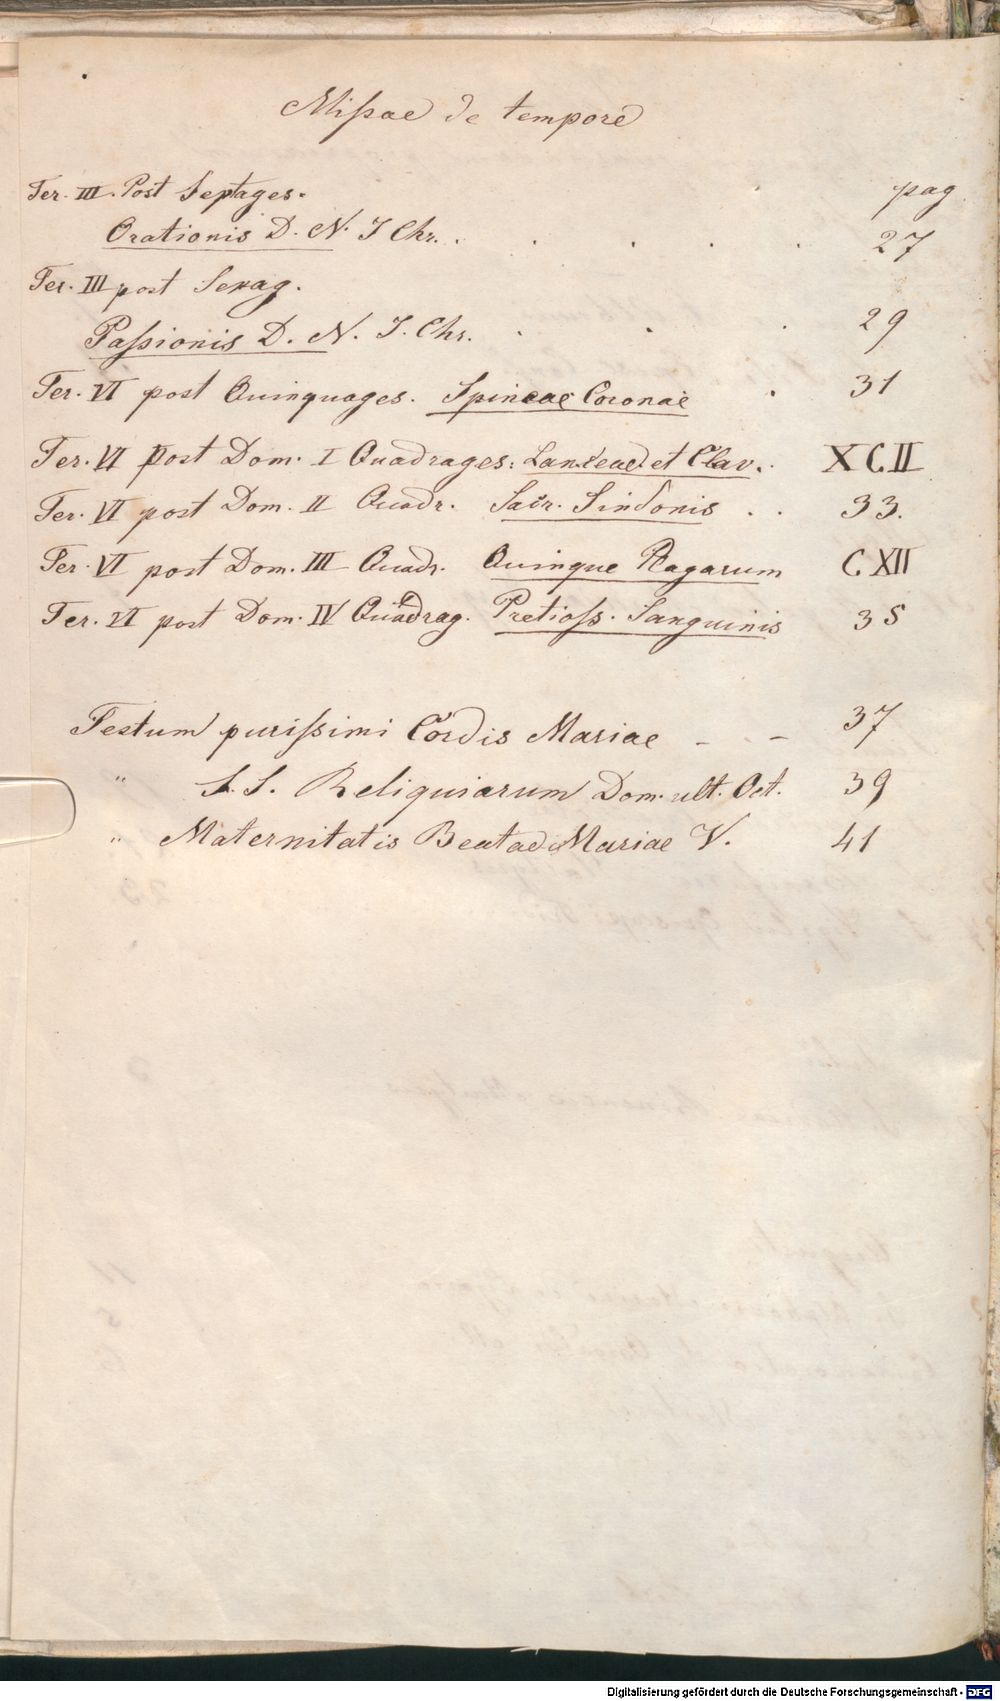 Missae de tempore
Fer. III. Post Septages. pag
Orationis D. N. J Chr. . . . . . 27
Fer. III post Sexag.
Passionis D. N. J. Chr. . . . 29
Fer. VI post Quinquages. Spineae Coronae . 31
Fer. VI Post Dom. I Quadrages: Lanceae et Clav. . XCII
Fer. VI post Dom. II Quadr. Sacr. Sindonis . . 33.
Fer. VI post Dom. III Quadr. Quinque Plagarum CXII
Fer. VI post Dom. IV Quadrag. Pretioss. Sanguinis 35
Festum purissimi Cordis Mariae - - - 37
" S. S. Reliquiarum Dom. ult. Oct. 39
" Maternitatis Beatae Mariae V. 41
Digitalisierung gefördert durch die Deutsche Forschungsgemeinschaft - DFG